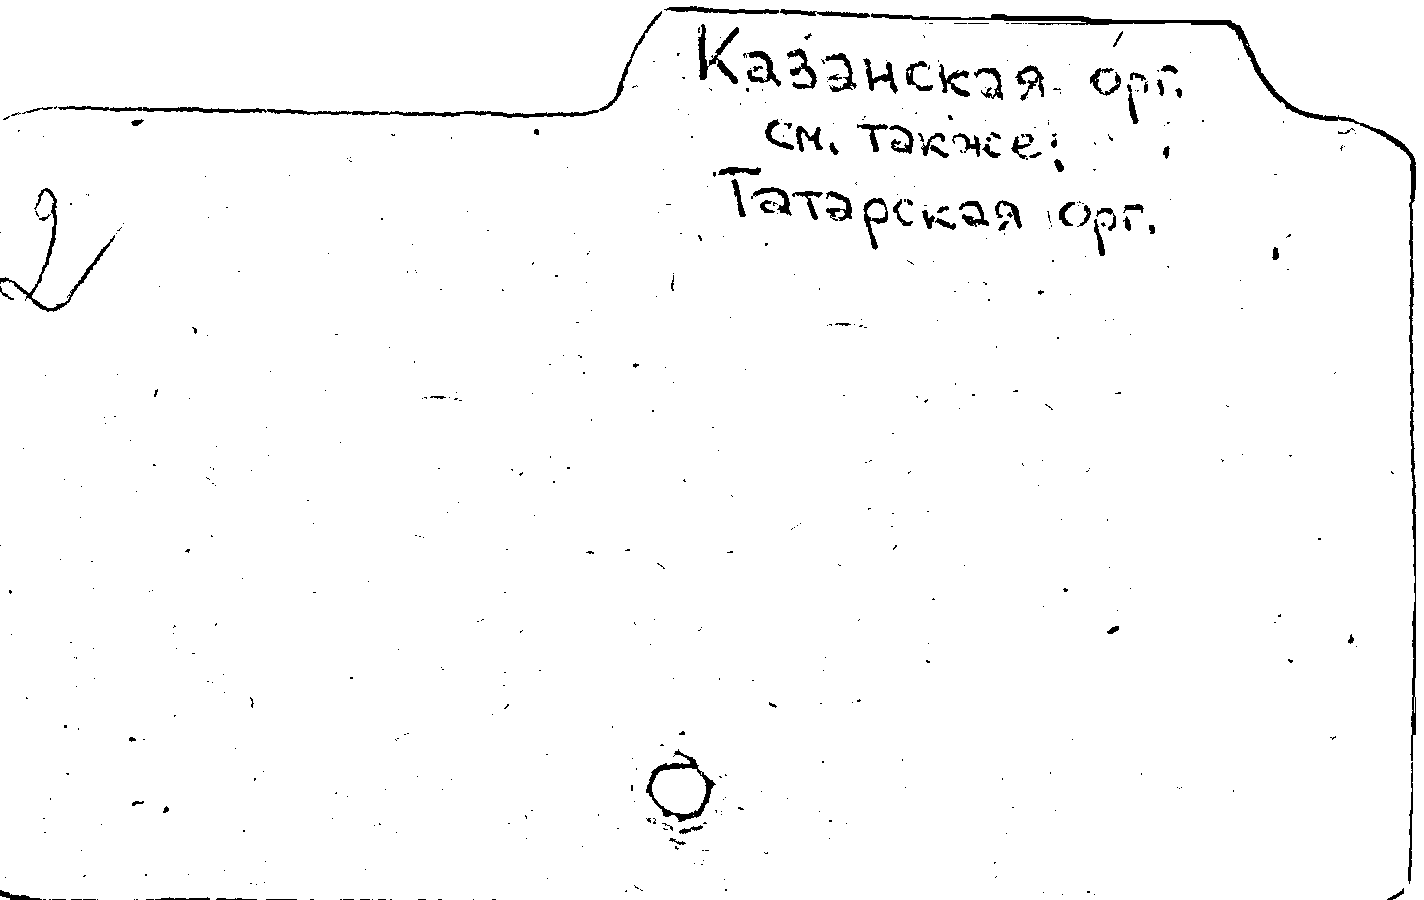 Казанская орг.
см. также:
Татарская орг.
2